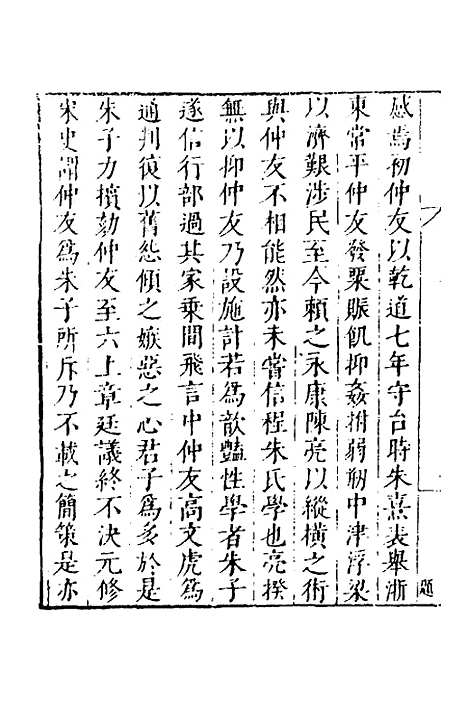 感焉初仲友以乾道七年守台時朱熹表舉浙
東常平仲友發粟賑飢抑姦拊弱剏中津浮梁
以濟艱涉民至今賴之永康陳亮以縱橫之術
與仲友不相能然亦未嘗信程朱氏學也亮揆
無以抑仲友乃設施計若爲歆豔性學者朱子
遂信行部過其家乗間飛言中仲友高文虎爲
通判復以舊怨傾之嫉惡之心君子爲多於是
朱子力擯劾仲友至六上章廷議終不決元修
宋史謂仲友爲朱子所斥乃不載之簡策是亦
題